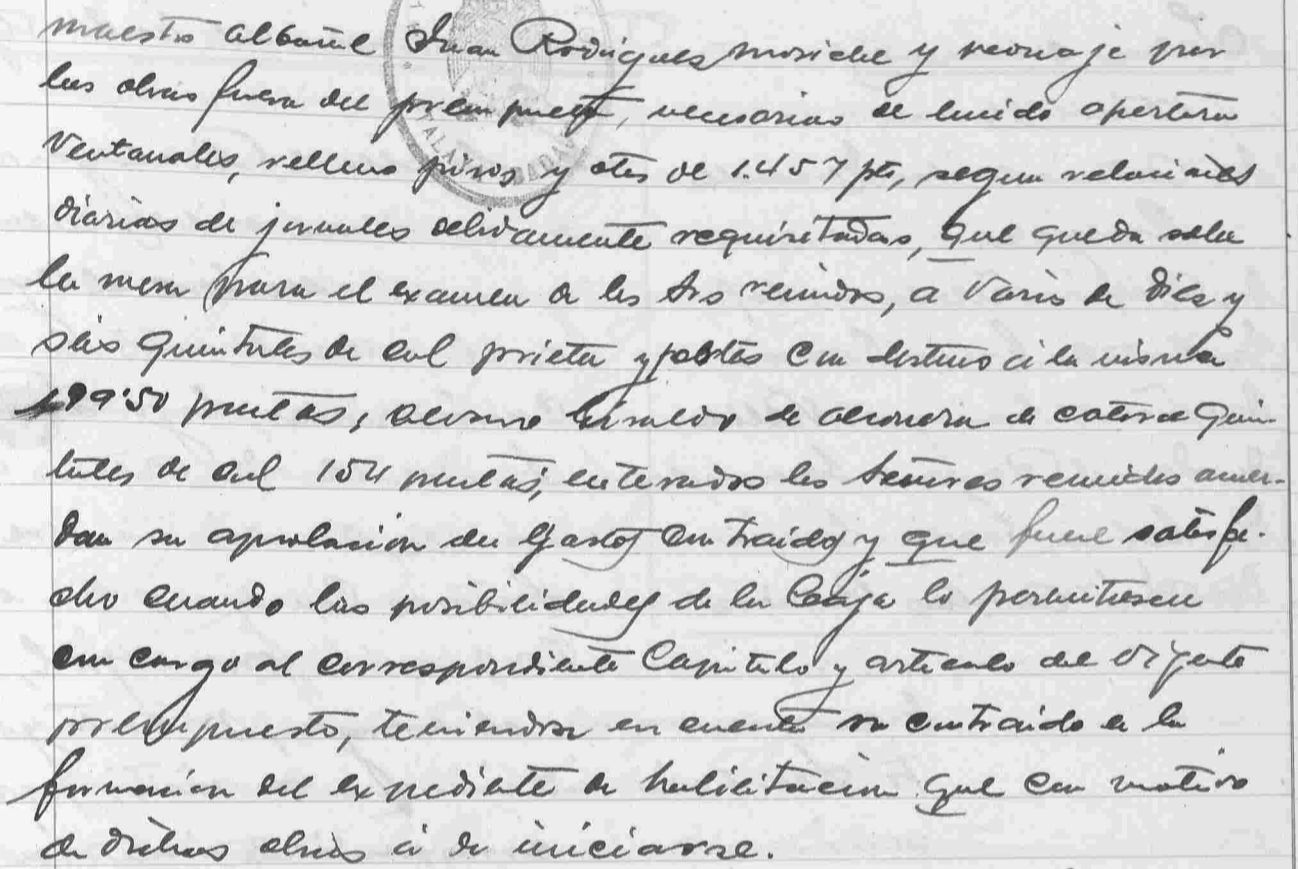 maestro albañil Juan Rodriguez Moriche y peonaje por
las obras fuera del presupuesto, necesarias de lucido apertura
Ventanales, relleno pisos y otros de 1.457 pts, segun relaciones
diarias de jornales debidamente requisitadas, que queda sobre
la mesa para el examen de los Srs reunidos, a Vario de diez y
seis quintales de cal prieta y portes con destino a la misma
199'50 pesetas, de catorce quin-
tales de cal 154 pesetas, enterados los Señores reunidos acuer-
dan su aprobacion del Gasto Contraido y que fuese satisfe-
cho cuando las posibilidades de la Caja lo permitiesen
con cargo al correspondiente Capitulo y articulo del Vigente
presupuesto, teniendose en cuenta su contraido a la
formacion del expediente de habilitacion que con motivo
de dichas obras á de iniciarse.
ALA